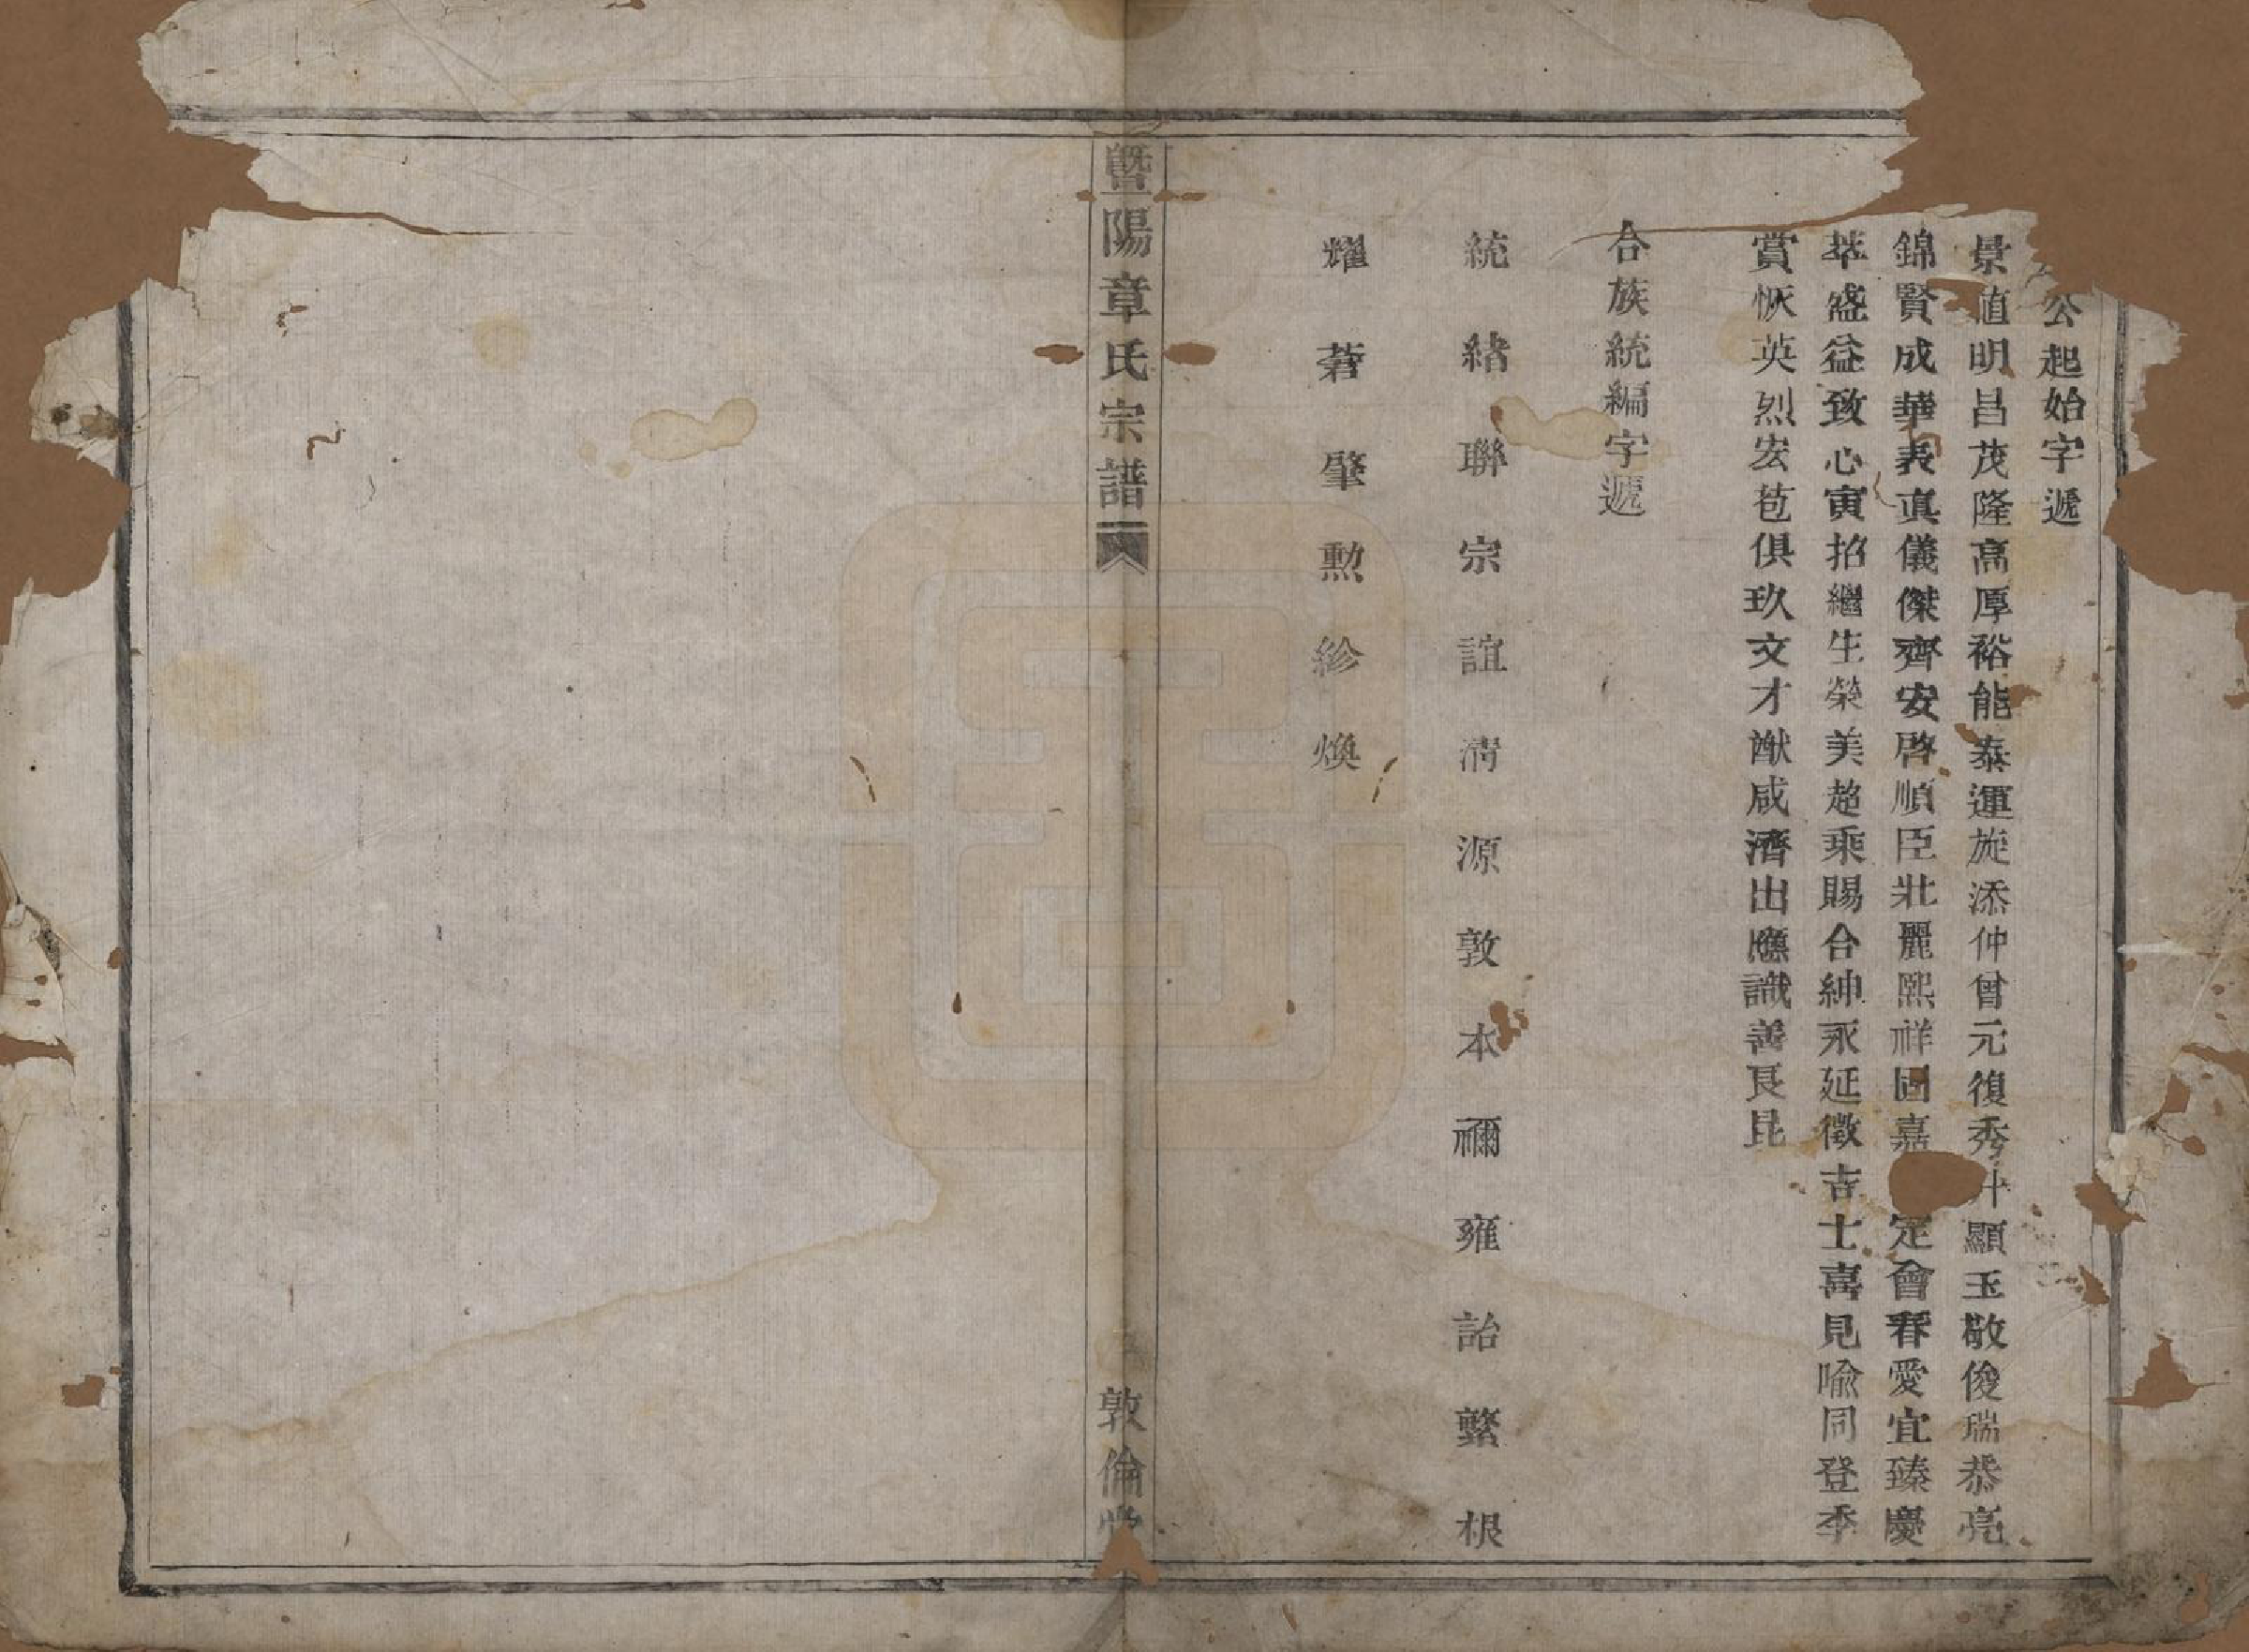 公起始字遞
景值明昌茂隆高厚裕能泰運旋添仲曾元復秀顯玉敬俊瑞恭亮
錦賢成華表真儀傑齊安啓順臣壯麗熙祥圖嘉定會春愛宜臻慶
萃盛益致心寅招繼生榮美超乘賜合紳永延徵吉士喜見喻同登季
賞恢英烈宏苞俱玖文才猷咸濟出應識善良昆
合族統編字遞
統緒聯宗誼清源敦本禰雍詒蘩根
耀蒼肇勲紾煥
暨陽章氏宗譜
敦倫堂